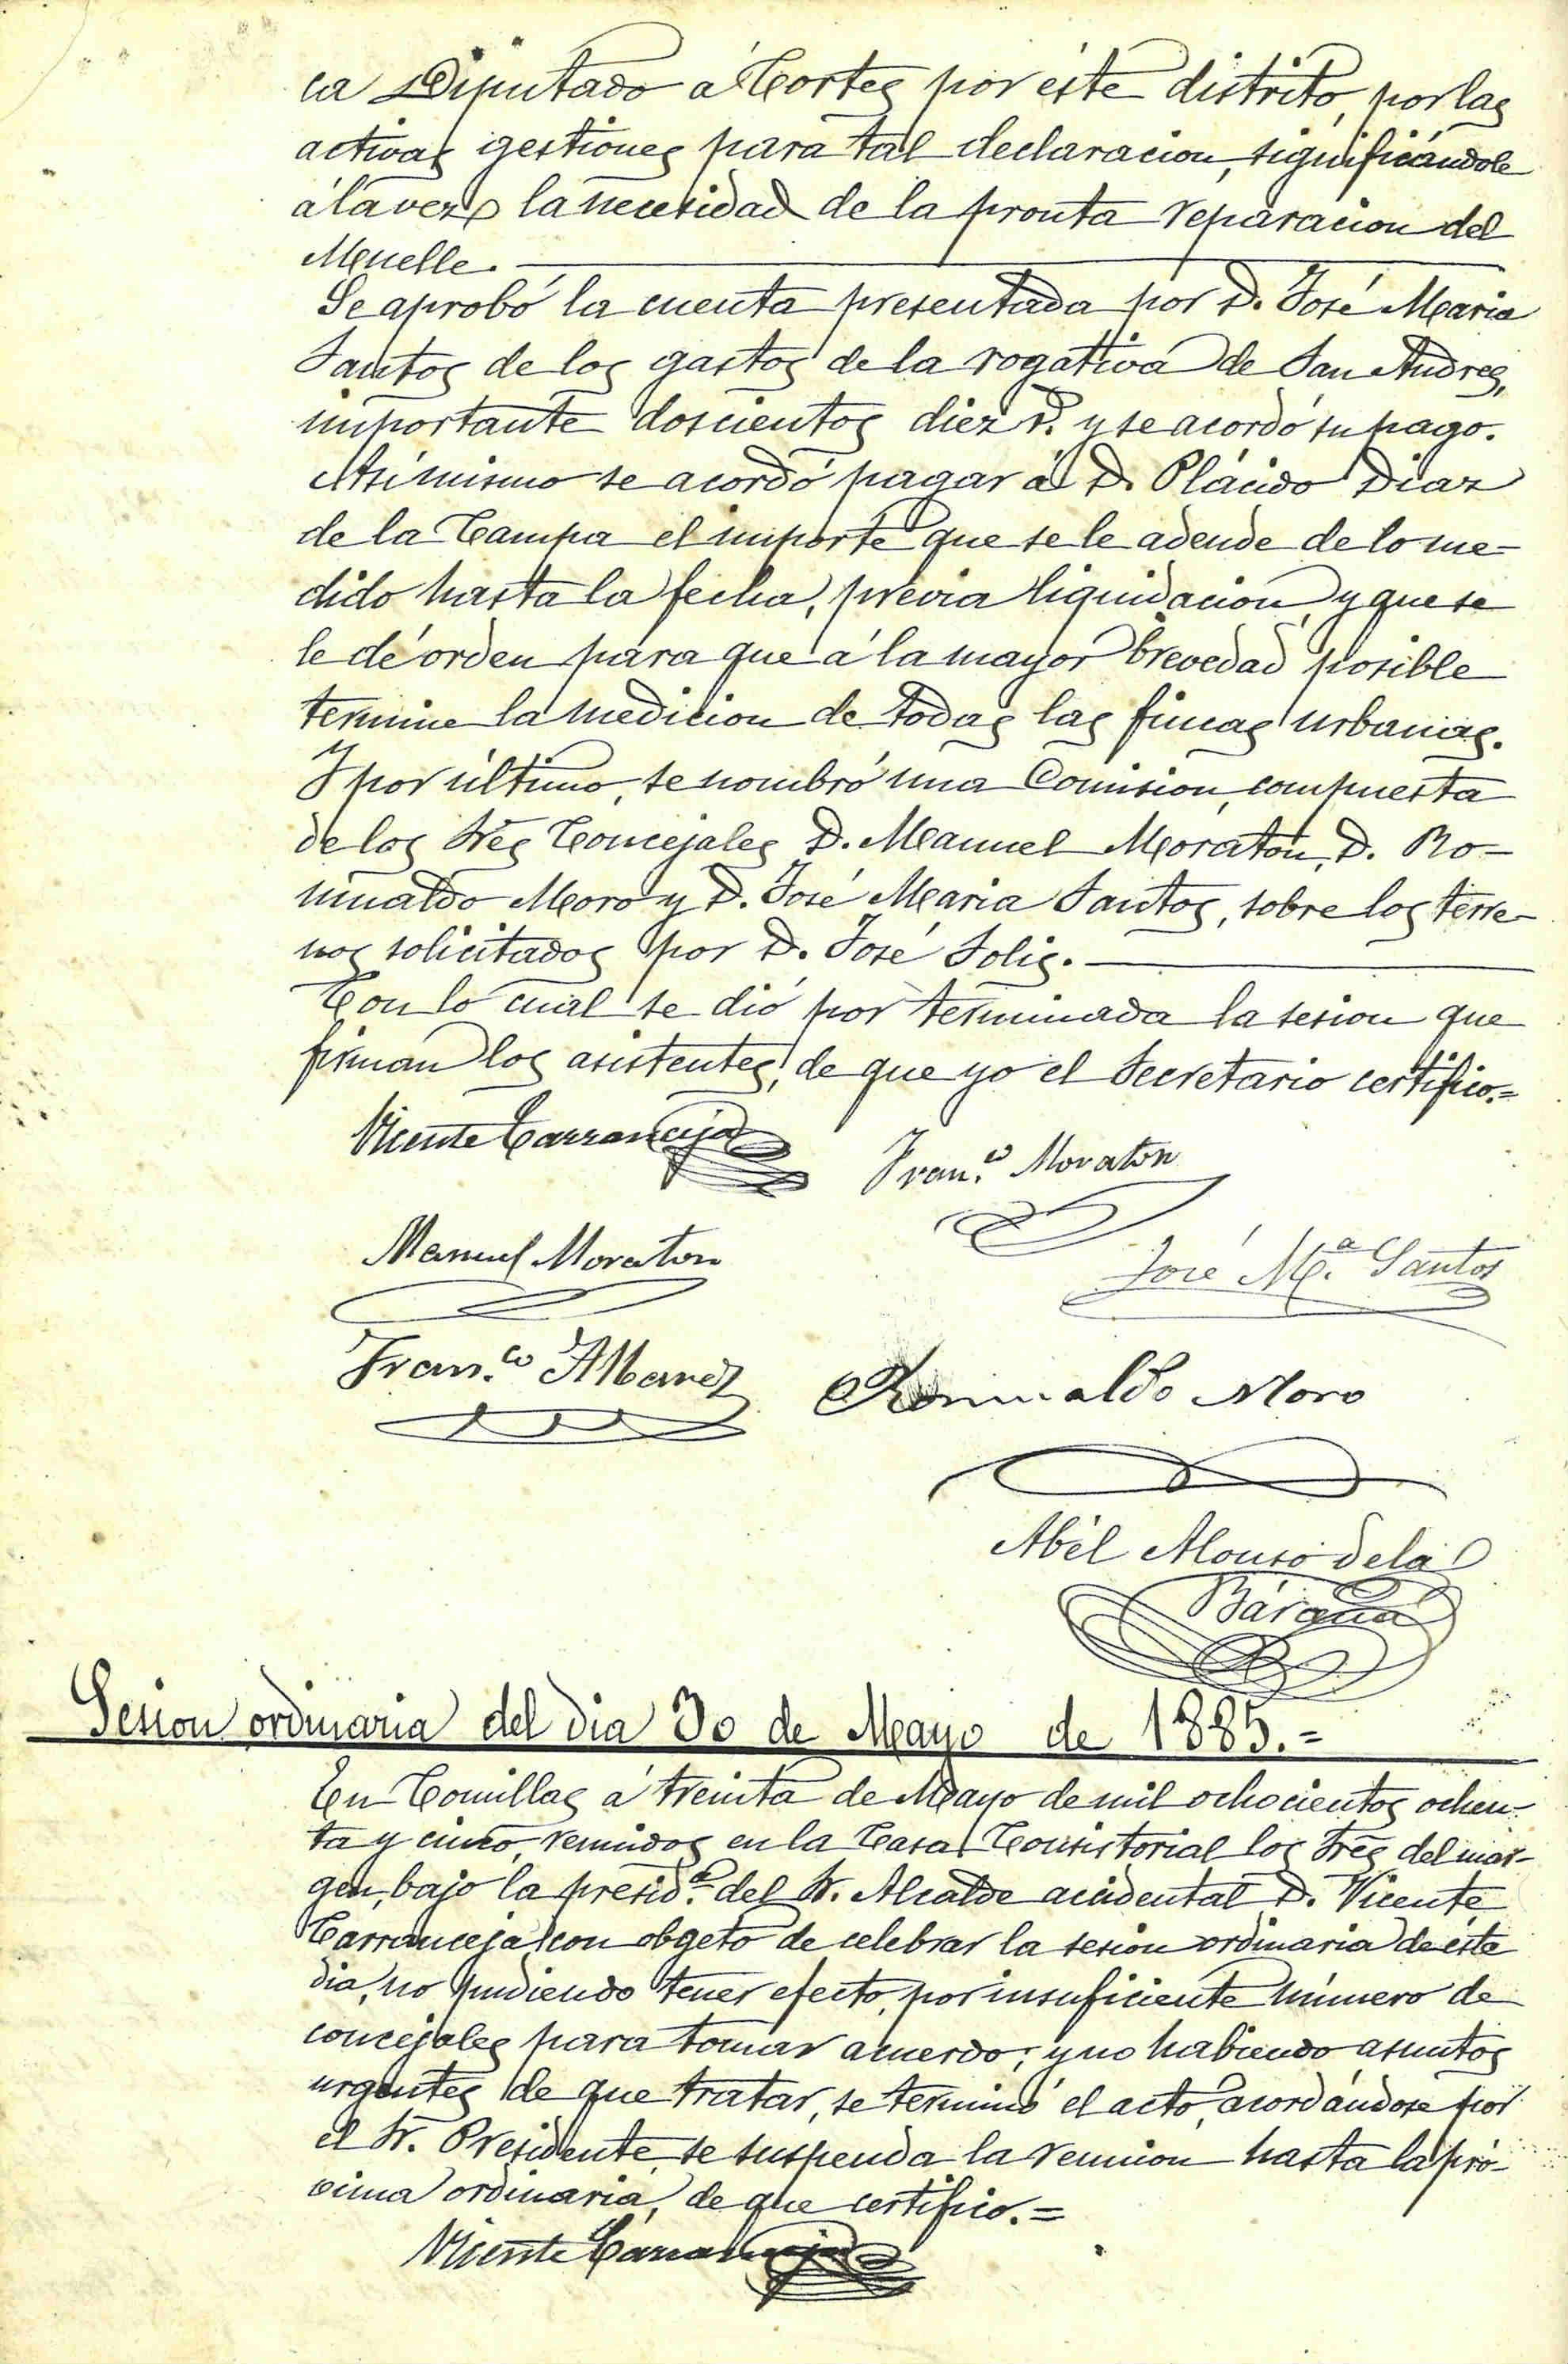 ca Diputado á Cortes por éste distrito, por las
activas gestiones para tal declaracion, significándole
á la vez la necesidad de la pronta reparacion del
Muelle.
Se aprobó la cuenta presentada por D. José Maria
Santos de los gastos de la rogativa de San Andres,
importante doscientos diez r.ˢ y se acordó su pago.
Asímismo se acordó pagar á D. Plácido Diaz
de la Campa el importe que se le adeude de lo me=
dido hasta la fecha, prévia liquidacion, y que se
le dé órden para que á la mayor brevedad posible
termine la medicion de todas las fincas urbanas.
Y por último, se nombró una Comision, compuesta
de los Sres Concejales D. Manuel Moraton, D. Ro-
mualdo Moro y D. José Maria Santos, sobre los terre-
nos solicitados por D. José Solis.
Con lo cual se dió por terminada la sesion que
firman los asistentes, de que yo el Secretario certifico.=
Vicente Carranceja
Fran.ᶜᵒ Moraton
Manuel Moraton
José M.ᵃ Santos
Fran.ᶜᵒ Alvarez
Romualdo Moro
Abél Alonso de la
Bárcena
Sesion ordinaria del dia 30 de Mayo de 1885.=
En Comillas á treinta de Mayo de mil ochocientos ochen-
ta y cinco, reunidos en la Casa Consistorial los Sres del mar-
gen, bajo la presid.ᵃ del Sr. Alcalde accidental D. Vicente
Carranceja con obgeto de celebrar la sesion ordinaria de éste
dia, no pudiendo tener efecto, por insuficiente número de
concejales para tomar acuerdo; y no habiendo asuntos
urgentes de que tratar, se terminó el acto, acordándose por
el Sr. Presidente se suspenda la reunion hasta la pró-
cima ordinaria, de que certifico.=
Vicente Carranceja